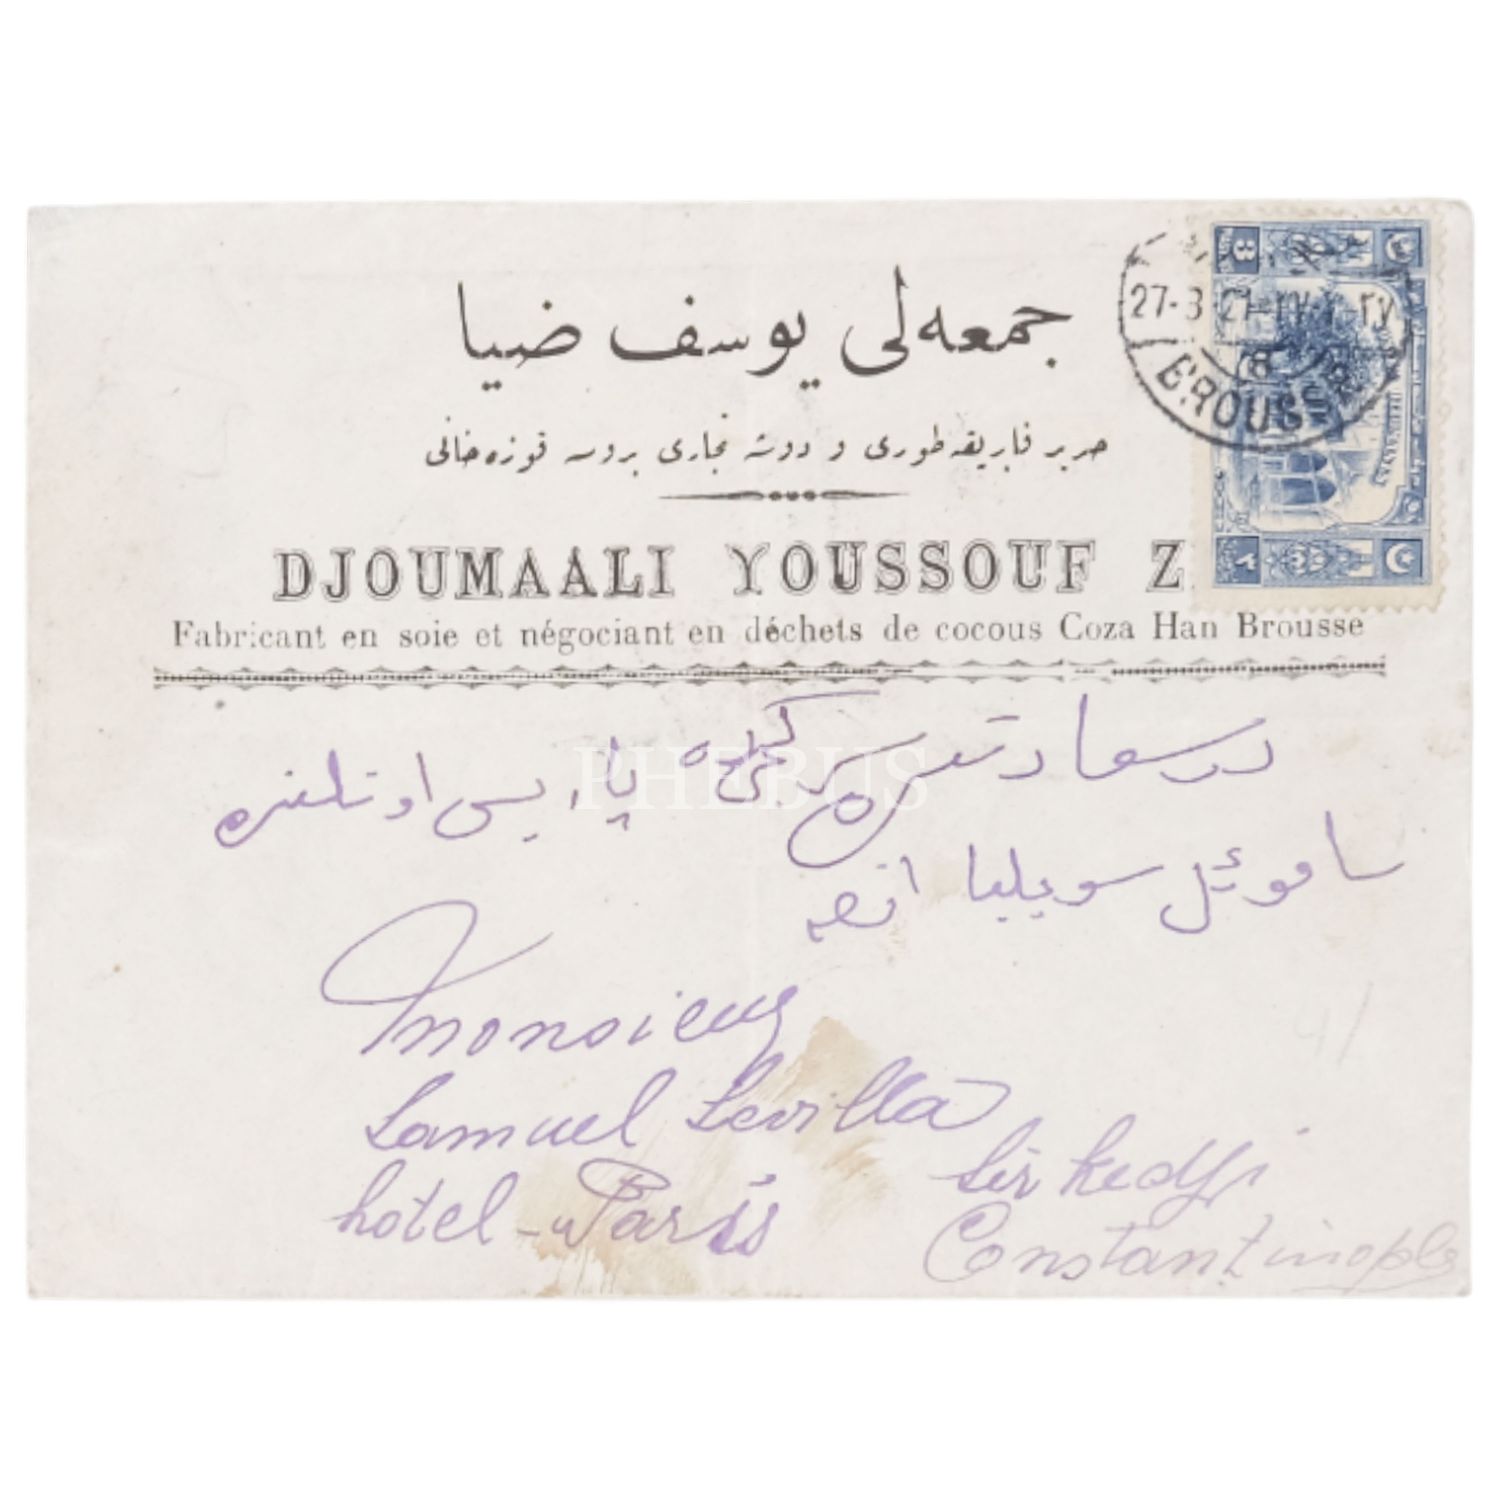 جمعه‌لى يوسف ضيا
حرير فابريقه‌طورى و دوشه تجارى بروسه قوزه‌خانى
DJOUMAALI YOUSSOUF Z
Fabricant en soie et négociant en déchets de cocous Coza Han Brousse
27-3-21
BROUSSE
درسعادتده سركه‌جيده پاريس اوتلنده
ساموئل سويليا افنديه
Monsieur
Samuel Sevilla
hôtel-Paris
Sirkedji
Constantinople
PHEBUS